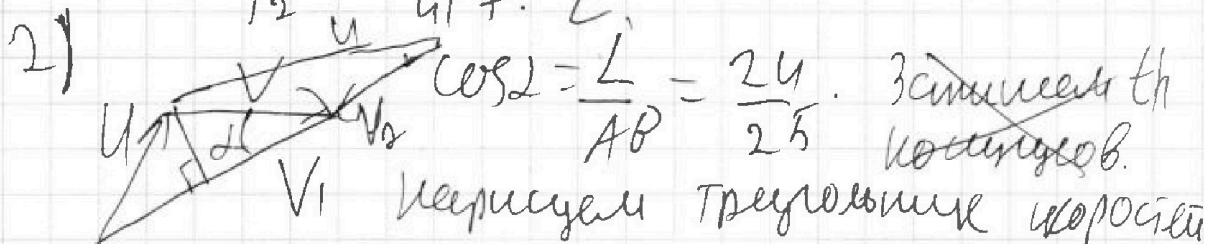 2)
U V u V₂ α V₁
cos α = L/AB = 24/25. Запишем th
косинусов.
нарисуем треугольник скоростей